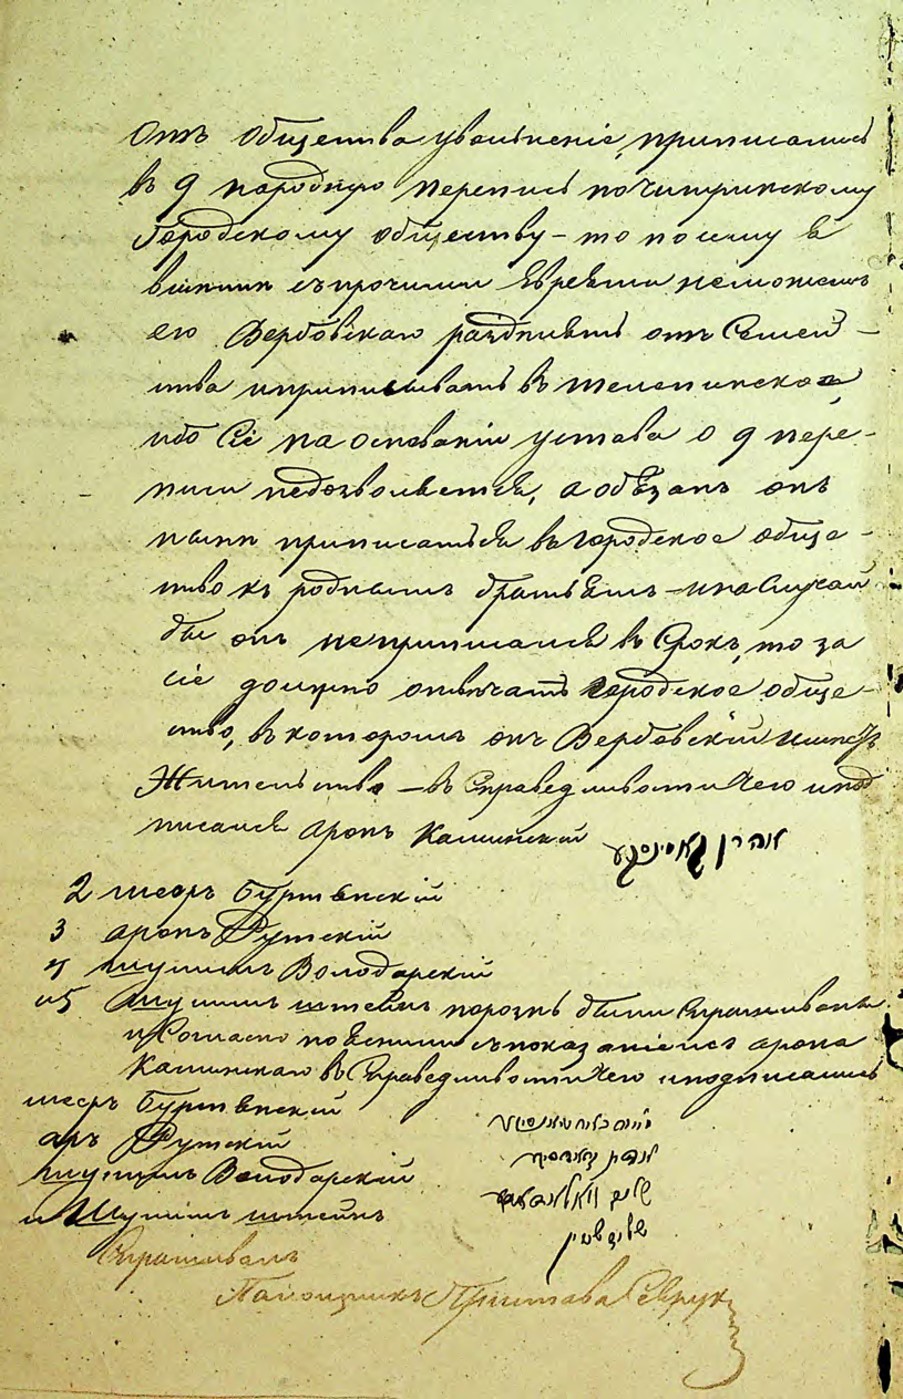 Отъ общества увольненіе, приписались
въ 9 народную перепись по чигиринскому
Городскому обществу – то по сему в
съ прочими Евреями неможемъ
его Вербовскаго раздплять отъ Семей-
ства и приписывать въ телепинское,
ибо Сіе на основаніи устава о 9 пере-
писи недозволяется, а обязанъ онъ
нынп приписаться въ городское обще-
ство къ роднымъ братьямъ – и на Случай
бы онъ неприписался въ Срокъ, то за
сіе должно отвпчать городское обще-
ство, въ которомъ онъ Вербовскій импетъ
Жительство – въ Справедливости чего и под
писался Аронъ Калинский
2 Бурштвнскій
3 аронъ Рутскій
4 шулимъ Володарскій
и 5 Шулимъ штейнъ порознь были Спрашиваны
и Согласно пояснили съ показаніемъ арона
Калинскаго въ Справедливости чего и подписались
Бурштвнскій
аръ Рутскій
шулимъ Володарскій
и Шулимъ штейнъ
Спрашивалъ
Помощникъ Пристава